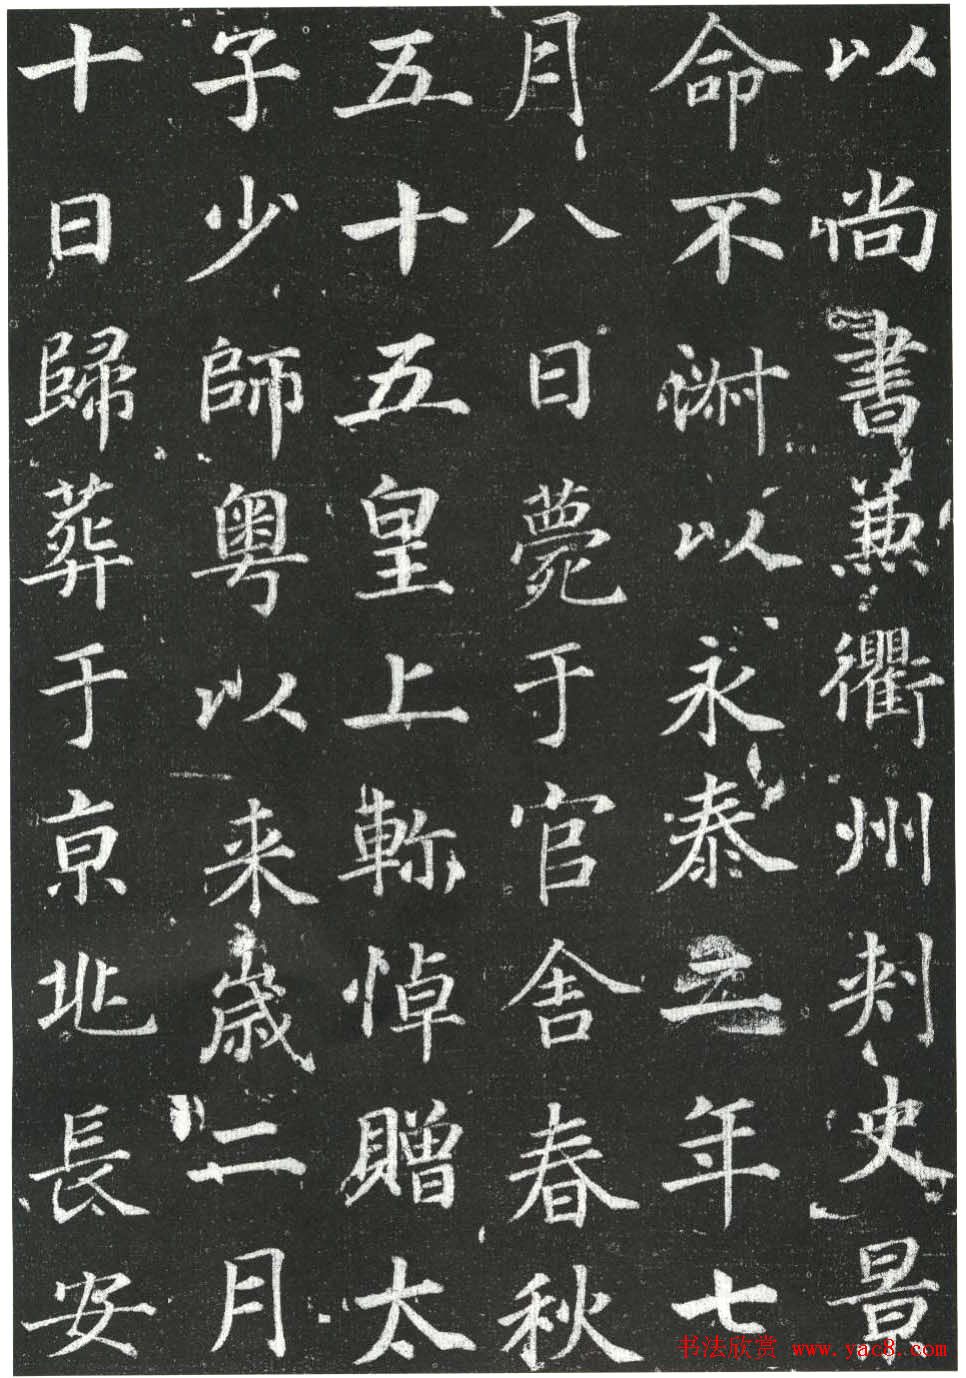 以尚書兼衢州刾史景
命不淑以永泰二年七
月八日薨于官舍春秋
五十五皇上軫悼贈太
子少師粤以来歲二月
十日歸葬于京兆長安
书法欣赏 www.yac8.com